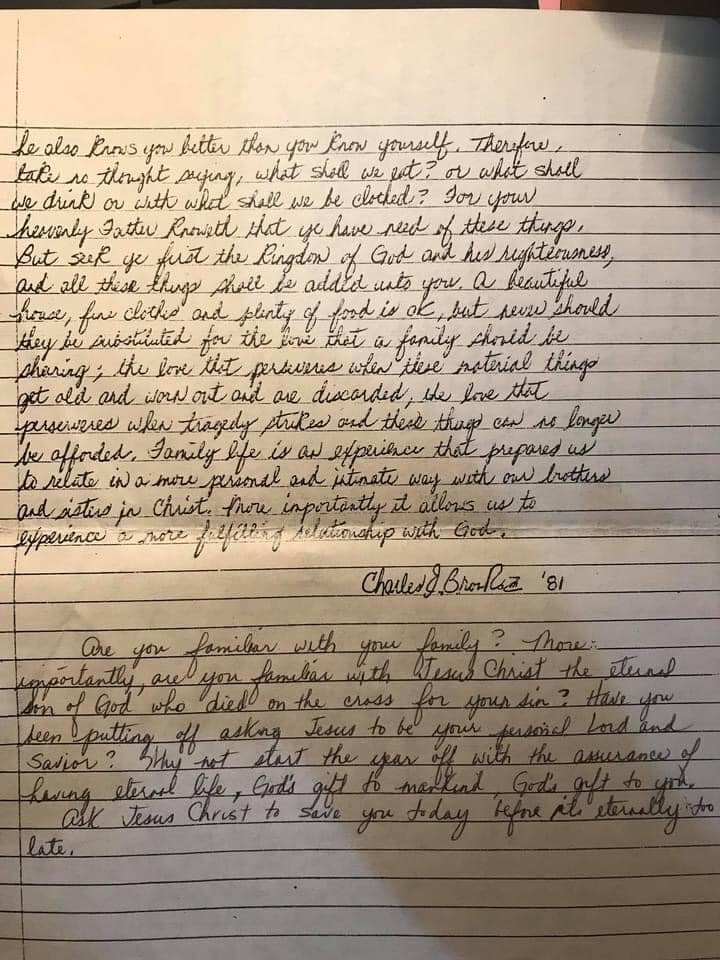 he also knows you better than you know yourself. Therefore,
take no thought saying, what shall we eat? or what shall
we drink? or with what shall we be clothed? For your
heavenly Father knoweth that ye have need of these things.
But seek ye first the Kingdon of God and his righteousness,
and all these things shall be added unto you. A beautiful
house, fine clothes and plenty of food is ok, but never should
they be substituted for the love that a family should be
sharing; the love that perseveres when these material things
get old and worn out and are discarded, the love that
perserveres when tragedy strikes and these things can no longer
be afforded. Family life is an experience that prepares us
to relate in a more personal and intimate way with our brothers
and sisters in Christ. More importantly it allows us to
experience a more fulfilling relationship with God.
Charles J. '81
Are you familiar with your family? More
importantly, are you familiar with Jesus Christ the eternal
Son of God who died on the cross for your sin? Have you
been putting off asking Jesus to be your personal Lord and
Savior? Why not start the year off with the assurance of
having eternal life, God's gift to mankind, God's gift to you.
Ask Jesus Christ to save you today before its eternally too
late.